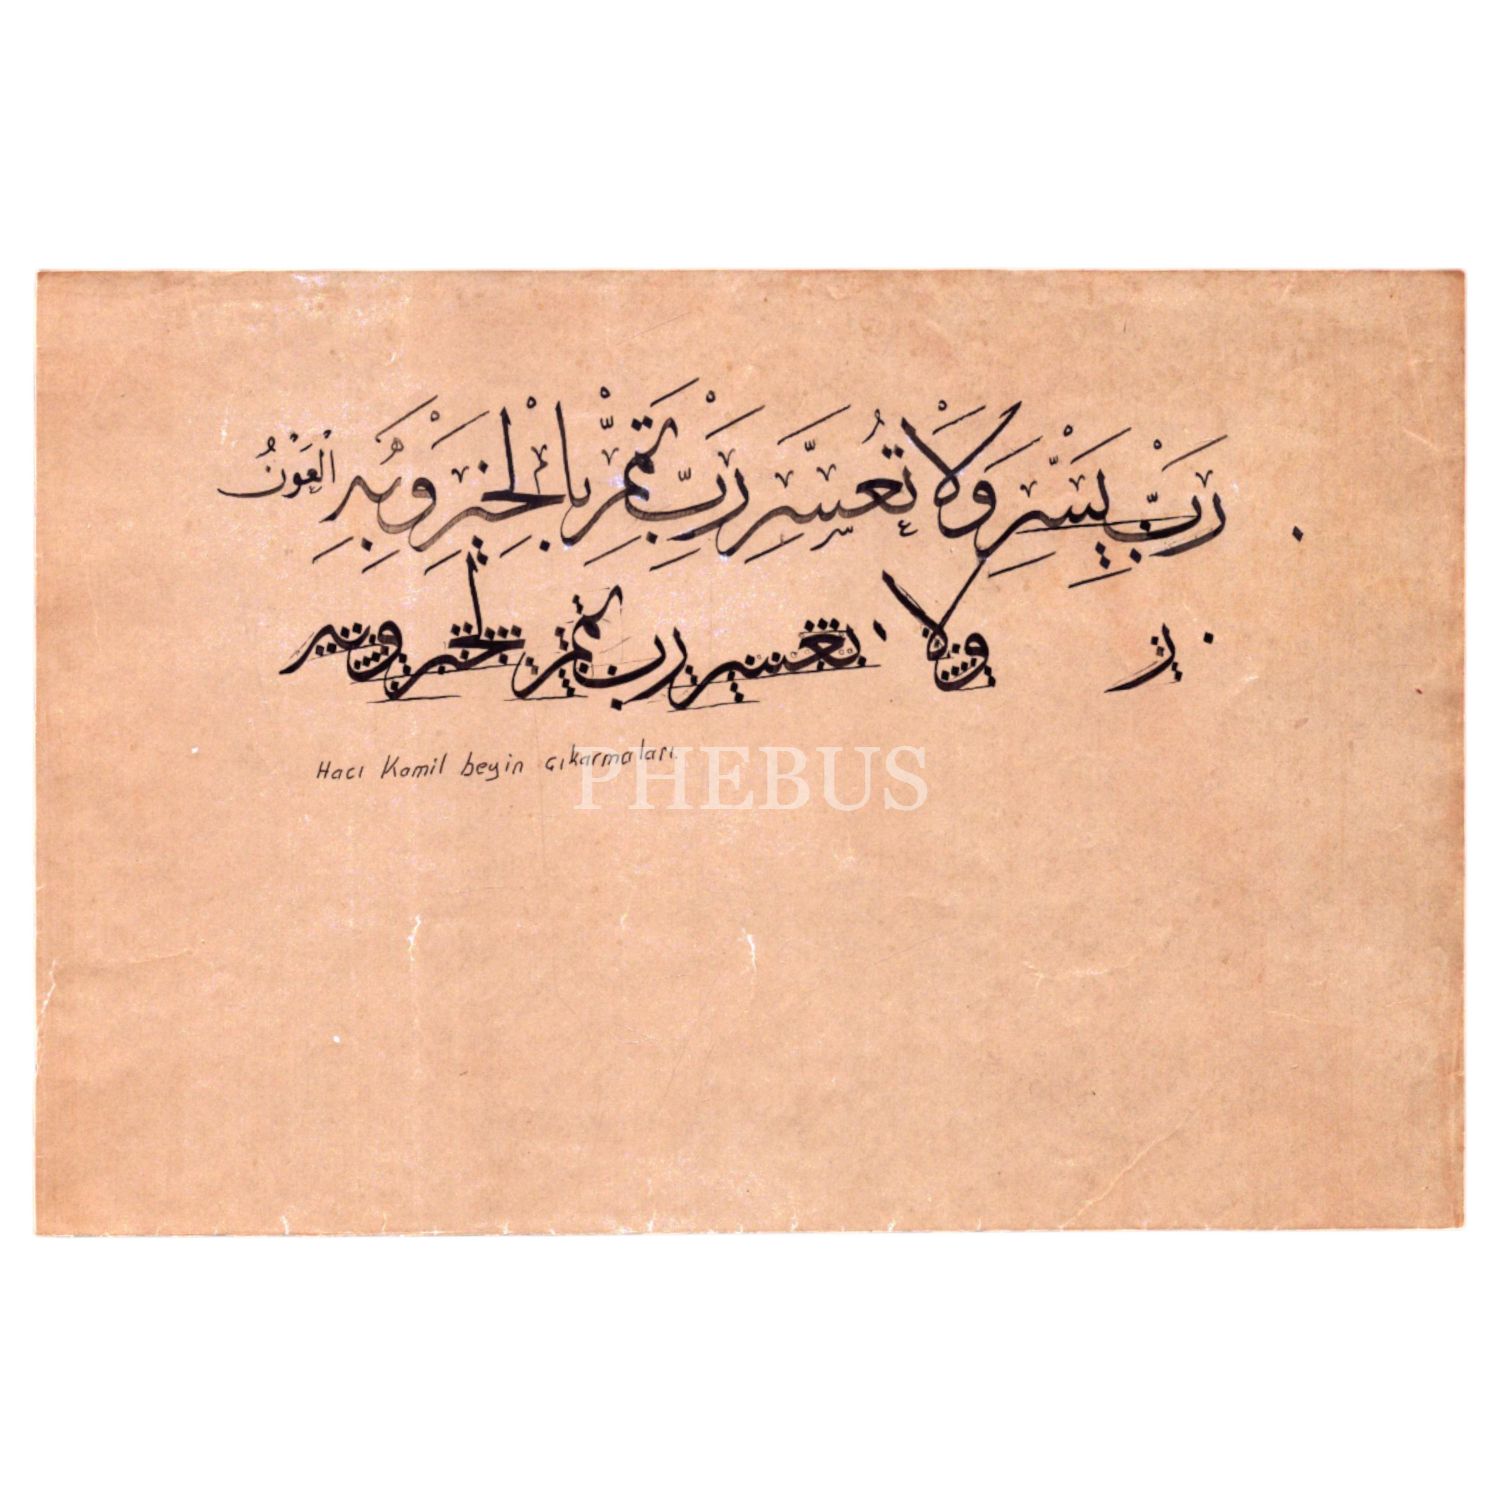 رَبِّ يَسِّرْ وَلَا تُعَسِّرْ رَبِّ تَمِّمْ بِالْخَيْرِ وَبِهِ الْعَوْنُ
ولا تعسر رب تمم
Hacı Kamil beyin çıkarmaları.
PHEBUS